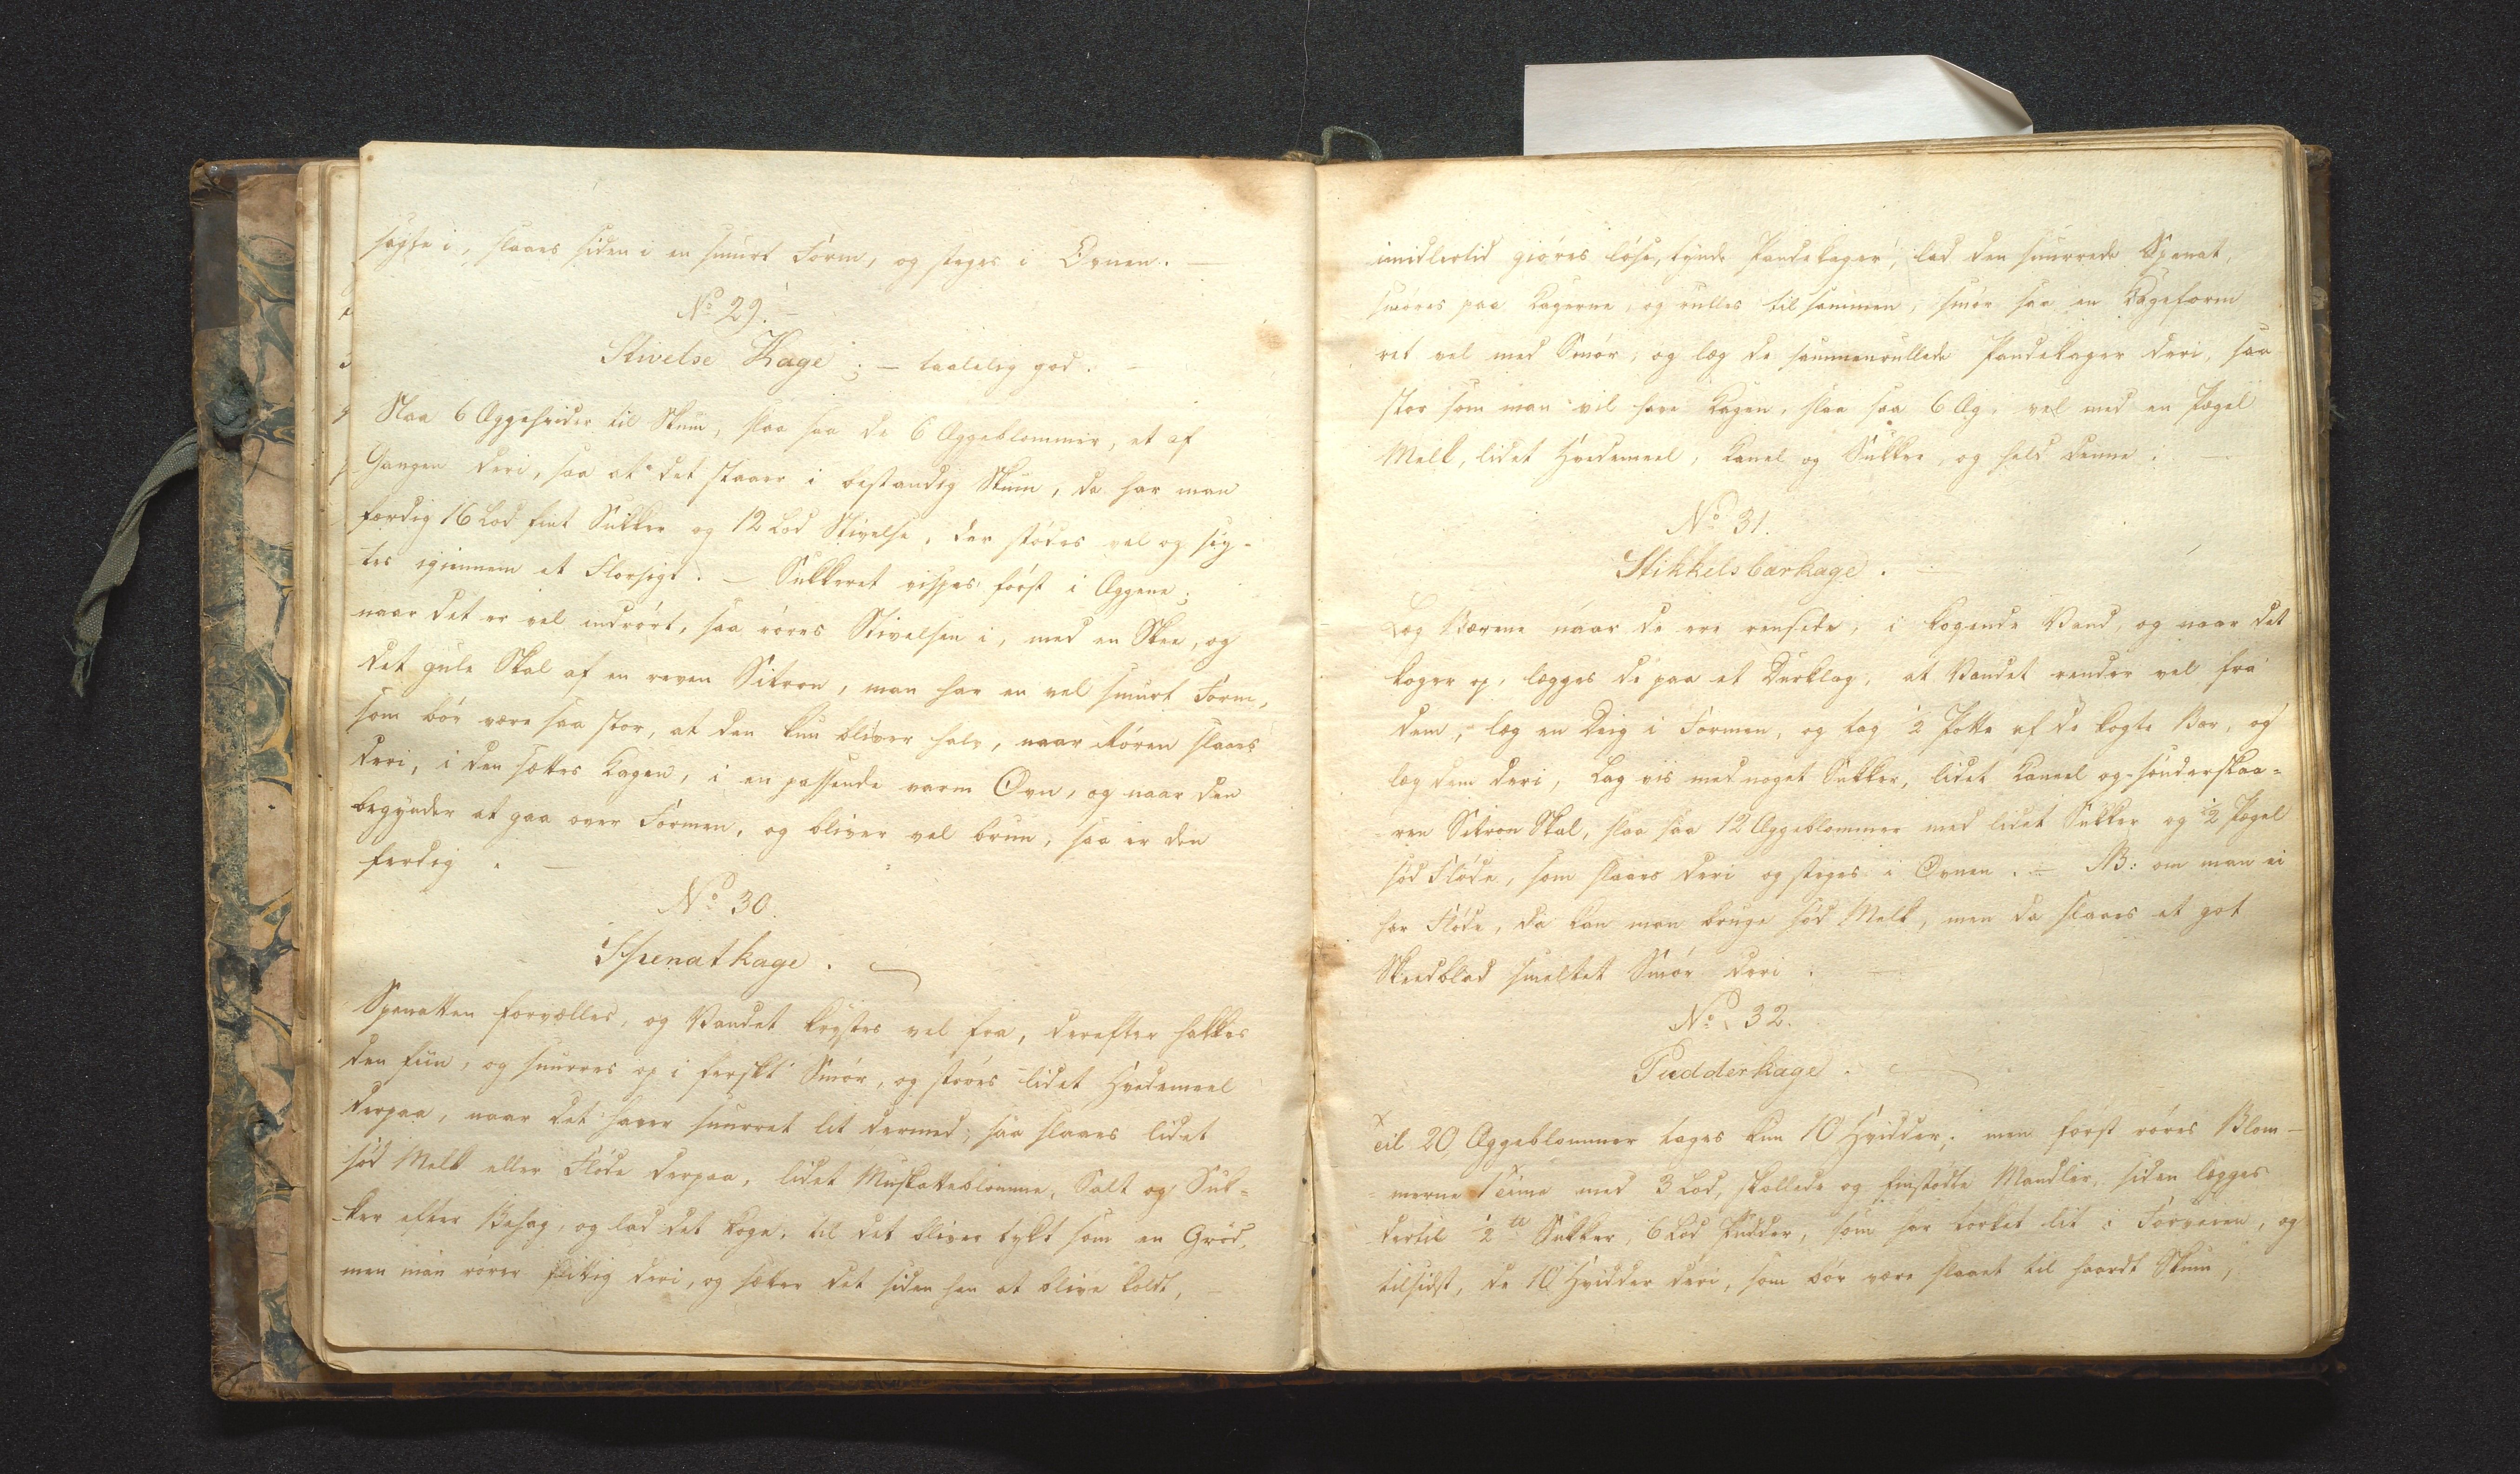 sagte i, slaaes siden i en smurt Form, og steges i Ovnen. —
No 29. —
Stivelse Kage; — taalelig god. —
Slaa 6 Æggehvider til Skum, slaa saa de 6 Æggeblommer, et af
Gangen deri, saa at det staaer i bestandig Skum, da har man
færdig 16 Lod fint Sukker og 12 Lod Stivelse, der stödes vel og sig-
tes igiennem et Florsigt. — Sukkeret vispes först i Æggene;
naar det er vel indrört, saa röres Stivelsen i, med en Skee, og
det gule Skal af en reven Sitron, man har en vel smurt Form,
som bör være saa stor, at den kun bliver halv, naar Rören slaaes
deri, i den sættes Kagen, i en passende varm Ovn, og naar den
begynder at gaa over Formen, og bliver vel brun, saa er den
ferdig. —
No 30.
Spenatkage.
Spenatten forvælles, og Vandet krystes vel fra, derefter hakkes
den fiin, og snurres op i ferskt Smör, og ströes lidet Hvedemeel
derpaa, naar det haver snurret lit dermed, saa slaaes lidet
söd Melk eller Flöde derpaa, lidet Muskatteblomme, Salt og Suk-
ker efter Behag, og lad det koge, til det bliver tykt som en Gröd,
men man rörer flittig deri, og sætter det siden hen at blive koldt,
imidlertid giöres löse, tynde Pandekager, lad den snurrede Spenat,
smöres paa Kagerne, og rulles tilsammen, smör saa en Kageform
ret vel med Smör, og læg de sammenrullede Pandekager deri, saa
stor som man vil have Kagen, slaa saa 6 Æg, vel med en Pægel
Melk, lidet Hvedemeel, Kanel og Sukker, og held denne. —
No 31.
Stikkelsbærkage.
Læg Bærene naar de ere rensede, i kogende Vand, og naar det
koger op, lægges de paa et Durklag, at Vandet render vel fra
dem, læg en Deig i Formen, og tag 1/2 Potte af de kogte Bær, og
læg dem deri, Lag vis med noget Sukker, lidet Kaneel og sönderskaa-
ren Sitron Skal, slaa saa 12 Æggeblommer med lidet Sukker og 1/2 Pægel
söd Flöde, som slaaes deri og steges i Ovnen. — NB: om man ei
har Flöde, da kan man bruge söd Melk, men da slaaes et got
Skeedblad smeltet Smör deri.
No 32.
Pudderkage.
Til 20 Æggeblommer tages kun 10 Hvidder, men först röres Blom-
merne 1 Time med 3 Lod, skollede og finstödte Mandler, siden lægges
dertil 1/2 ℔ Sukker, 6 Lod Pudder, som har törket lit i Forveien, og
tilsidst, de 10 Hvidder deri, som bör være slaaet til haardt Skum,